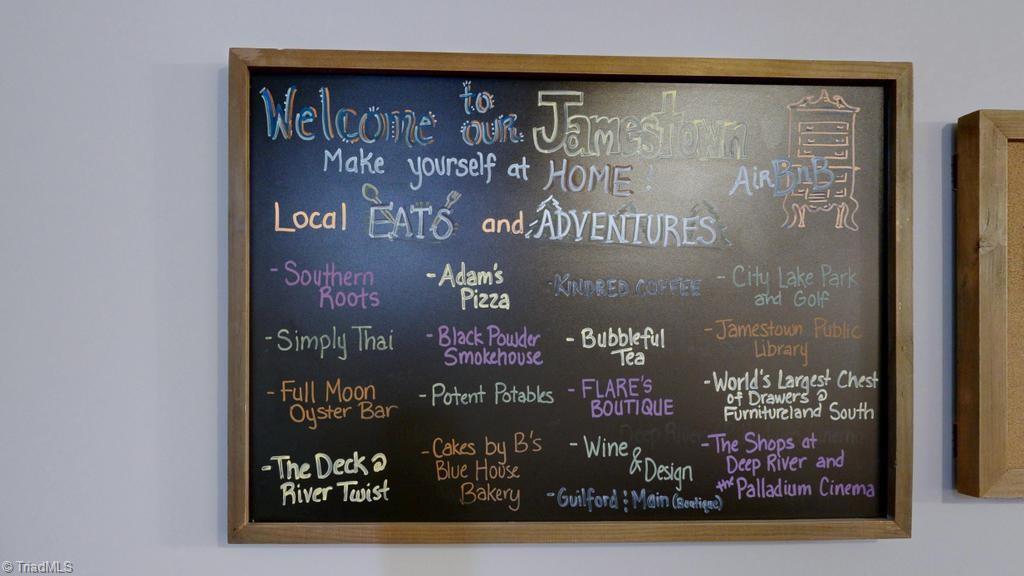 Welcome to our Jamestown
AirBnB
Make yourself at HOME!
Local EATS and ADVENTURES
- Southern
Roots
- Simply Thai
- Full Moon
Oyster Bar
- The Deck @
River Twist
- Adam's
Pizza
- Black Powder
Smokehouse
- Potent Potables
- Cakes by B's
Blue House
Bakery
- KINDRED COFFEE
- Bubbleful
Tea
- FLARE'S
BOUTIQUE
- Wine
& Design
- Guilford & Main (Boutique)
- City Lake Park
and Golf
- Jamestown Public
Library
- World's Largest Chest
of Drawers @
Furnitureland South
- The Shops at
Deep River and
the Palladium Cinema
© TriadMLS